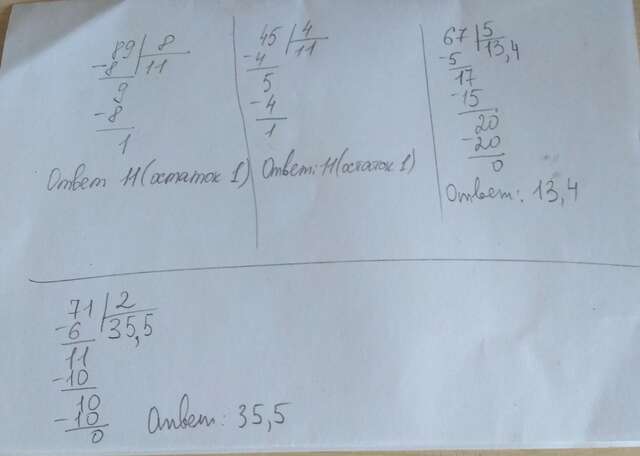 89 8
-8 11
9
-8
1
Ответ 11(остаток 1)
45 4
-4 11
5
-4
1
Ответ: 11(остаток 1)
67 5
-5 13,4
17
-15
20
-20
0
Ответ: 13,4
71 2
-6 35,5
11
-10
10
-10
0
Ответ: 35,5